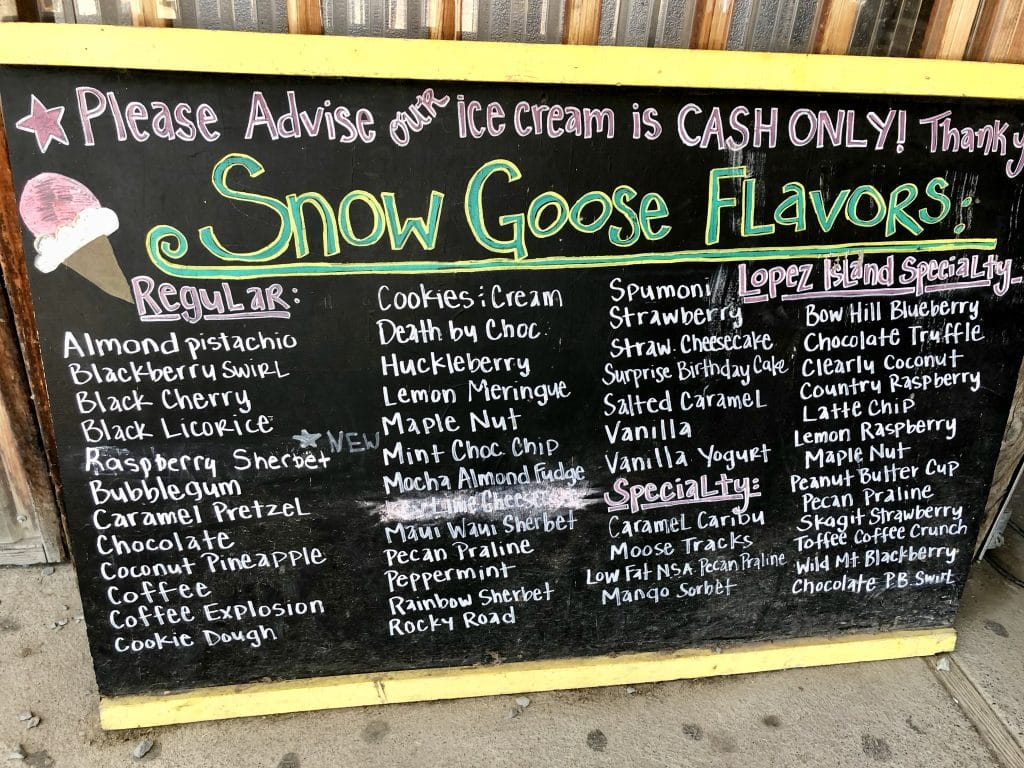 Please Advise our ice cream is CASH ONLY! Thank y
Snow Goose Flavors:
Regular:
Almond pistachio
Blackberry Swirl
Black Cherry
Black Licorice
Raspberry Sherbet NEW
Bubblegum
Caramel Pretzel
Chocolate
Coconut Pineapple
Coffee
Coffee Explosion
Cookie Dough
Cookies & Cream
Death by Choc.
Huckleberry
Lemon Meringue
Maple Nut
Mint Choc Chip
Mocha Almond Fudge
Lime
Maui Waui Sherbet
Pecan Praline
Peppermint
Rainbow Sherbet
Rocky Road
Spumoni
Strawberry
Straw. Cheesecake
Surprise Birthday Cake
Salted Caramel
Vanilla
Vanilla Yogurt
Specialty:
Caramel Caribu
Moose Tracks
Low Fat N.S.A. Pecan Praline
Mango Sorbet
Lopez Island Specialty
Bow Hill Blueberry
Chocolate Truffle
Clearly Coconut
Country Raspberry
Latte Chip
Lemon Raspberry
Maple Nut
Peanut Butter Cup
Pecan Praline
Skagit Strawberry
Toffee Coffee Crunch
Wild Mt. Blackberry
Chocolate P.B. Swirl